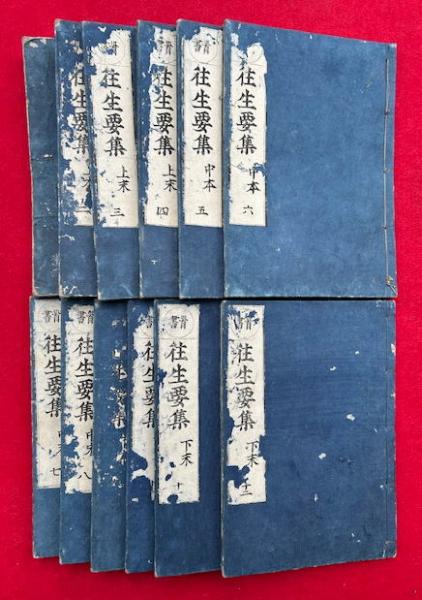 首書
往生要集
二
首書
往生要集
上末
三
首書
往生要集
上末
四
首書
往生要集
中本
五
首書
往生要集
中本
六
首書
往生要集
中
七
首書
往生要集
中末
八
生要集
首書
往生要集
首書
往生要集
下末
十
首書
往生要集
下末
十二